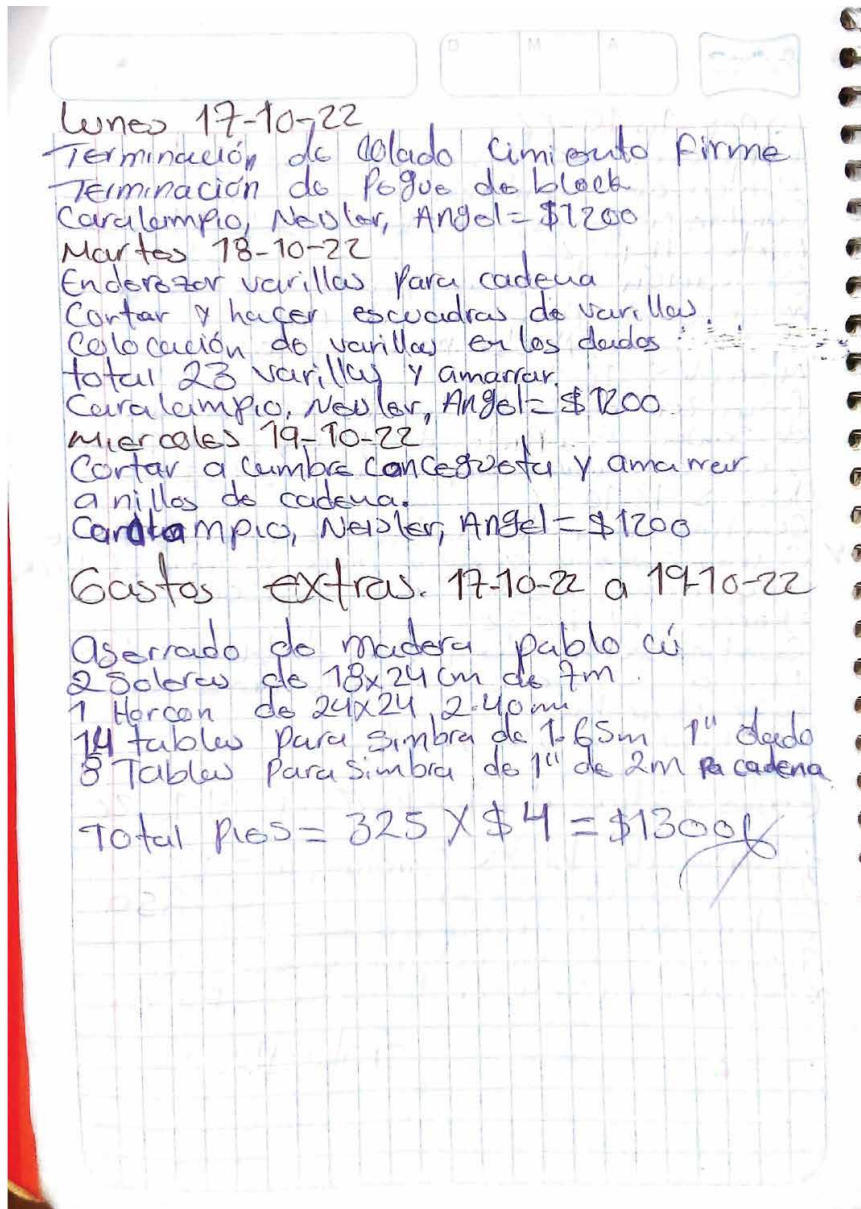 D M A
Lunes 17-10-22
Terminación de colado cimiento Firme
Terminación de Pegue de block
Caralampio, Neisler, Angel = $1200
Martes 18-10-22
Enderezar varillas Para cadena
Cortar y hacer escuadras de varillas.
Colocación de varillas en los dados
total 23 varillas y amarrar.
Caralampio, Neisler, Angel = $1200
Miercoles 19-10-22
Cortar a cumbre con cegueta y amarrar
anillos de cadena.
Caralampio, Neisler, Angel = $1200
Gastos extras. 17-10-22 a 19-10-22
aserrado de madera pablo cú
2 Soleras de 18x24 cm de 7m.
1 Horcon de 24x24 2.40 m
14 tablas para simbra de 1.65m 1" dado
8 Tablas Para simbra de 1" de 2m Pa cadena
Total Pies = 325 X $4 = $1300